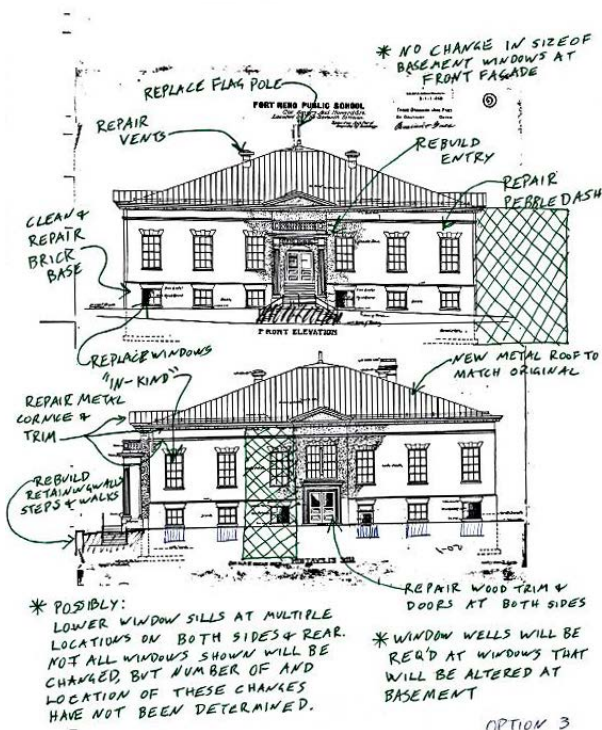 * NO CHANGE IN SIZE OF
BASEMENT WINDOWS AT
FRONT FAÇADE
REPLACE FLAG POLE
FORT RENO PUBLIC SCHOOL
REPAIR
VENTS
REBUILD
ENTRY
REPAIR
PEBBLE DASH
CLEAN &
REPAIR
BRICK
BASE
FRONT ELEVATION
REPLACE WINDOWS
"IN-KIND"
NEW METAL ROOF TO
MATCH ORIGINAL
REPAIR METAL
CORNICE &
TRIM
REBUILD
RETAINING WALLS
STEPS & WALKS
REPAIR WOOD TRIM &
DOORS AT BOTH SIDES
* POSSIBLY:
LOWER WINDOW SILLS AT MULTIPLE
LOCATIONS ON BOTH SIDES & REAR.
NOT ALL WINDOWS SHOWN WILL BE
CHANGED, BUT NUMBER OF AND
LOCATION OF THESE CHANGES
HAVE NOT BEEN DETERMINED.
* WINDOW WELLS WILL BE
REQ'D AT WINDOWS THAT
WILL BE ALTERED AT
BASEMENT
OPTION 3